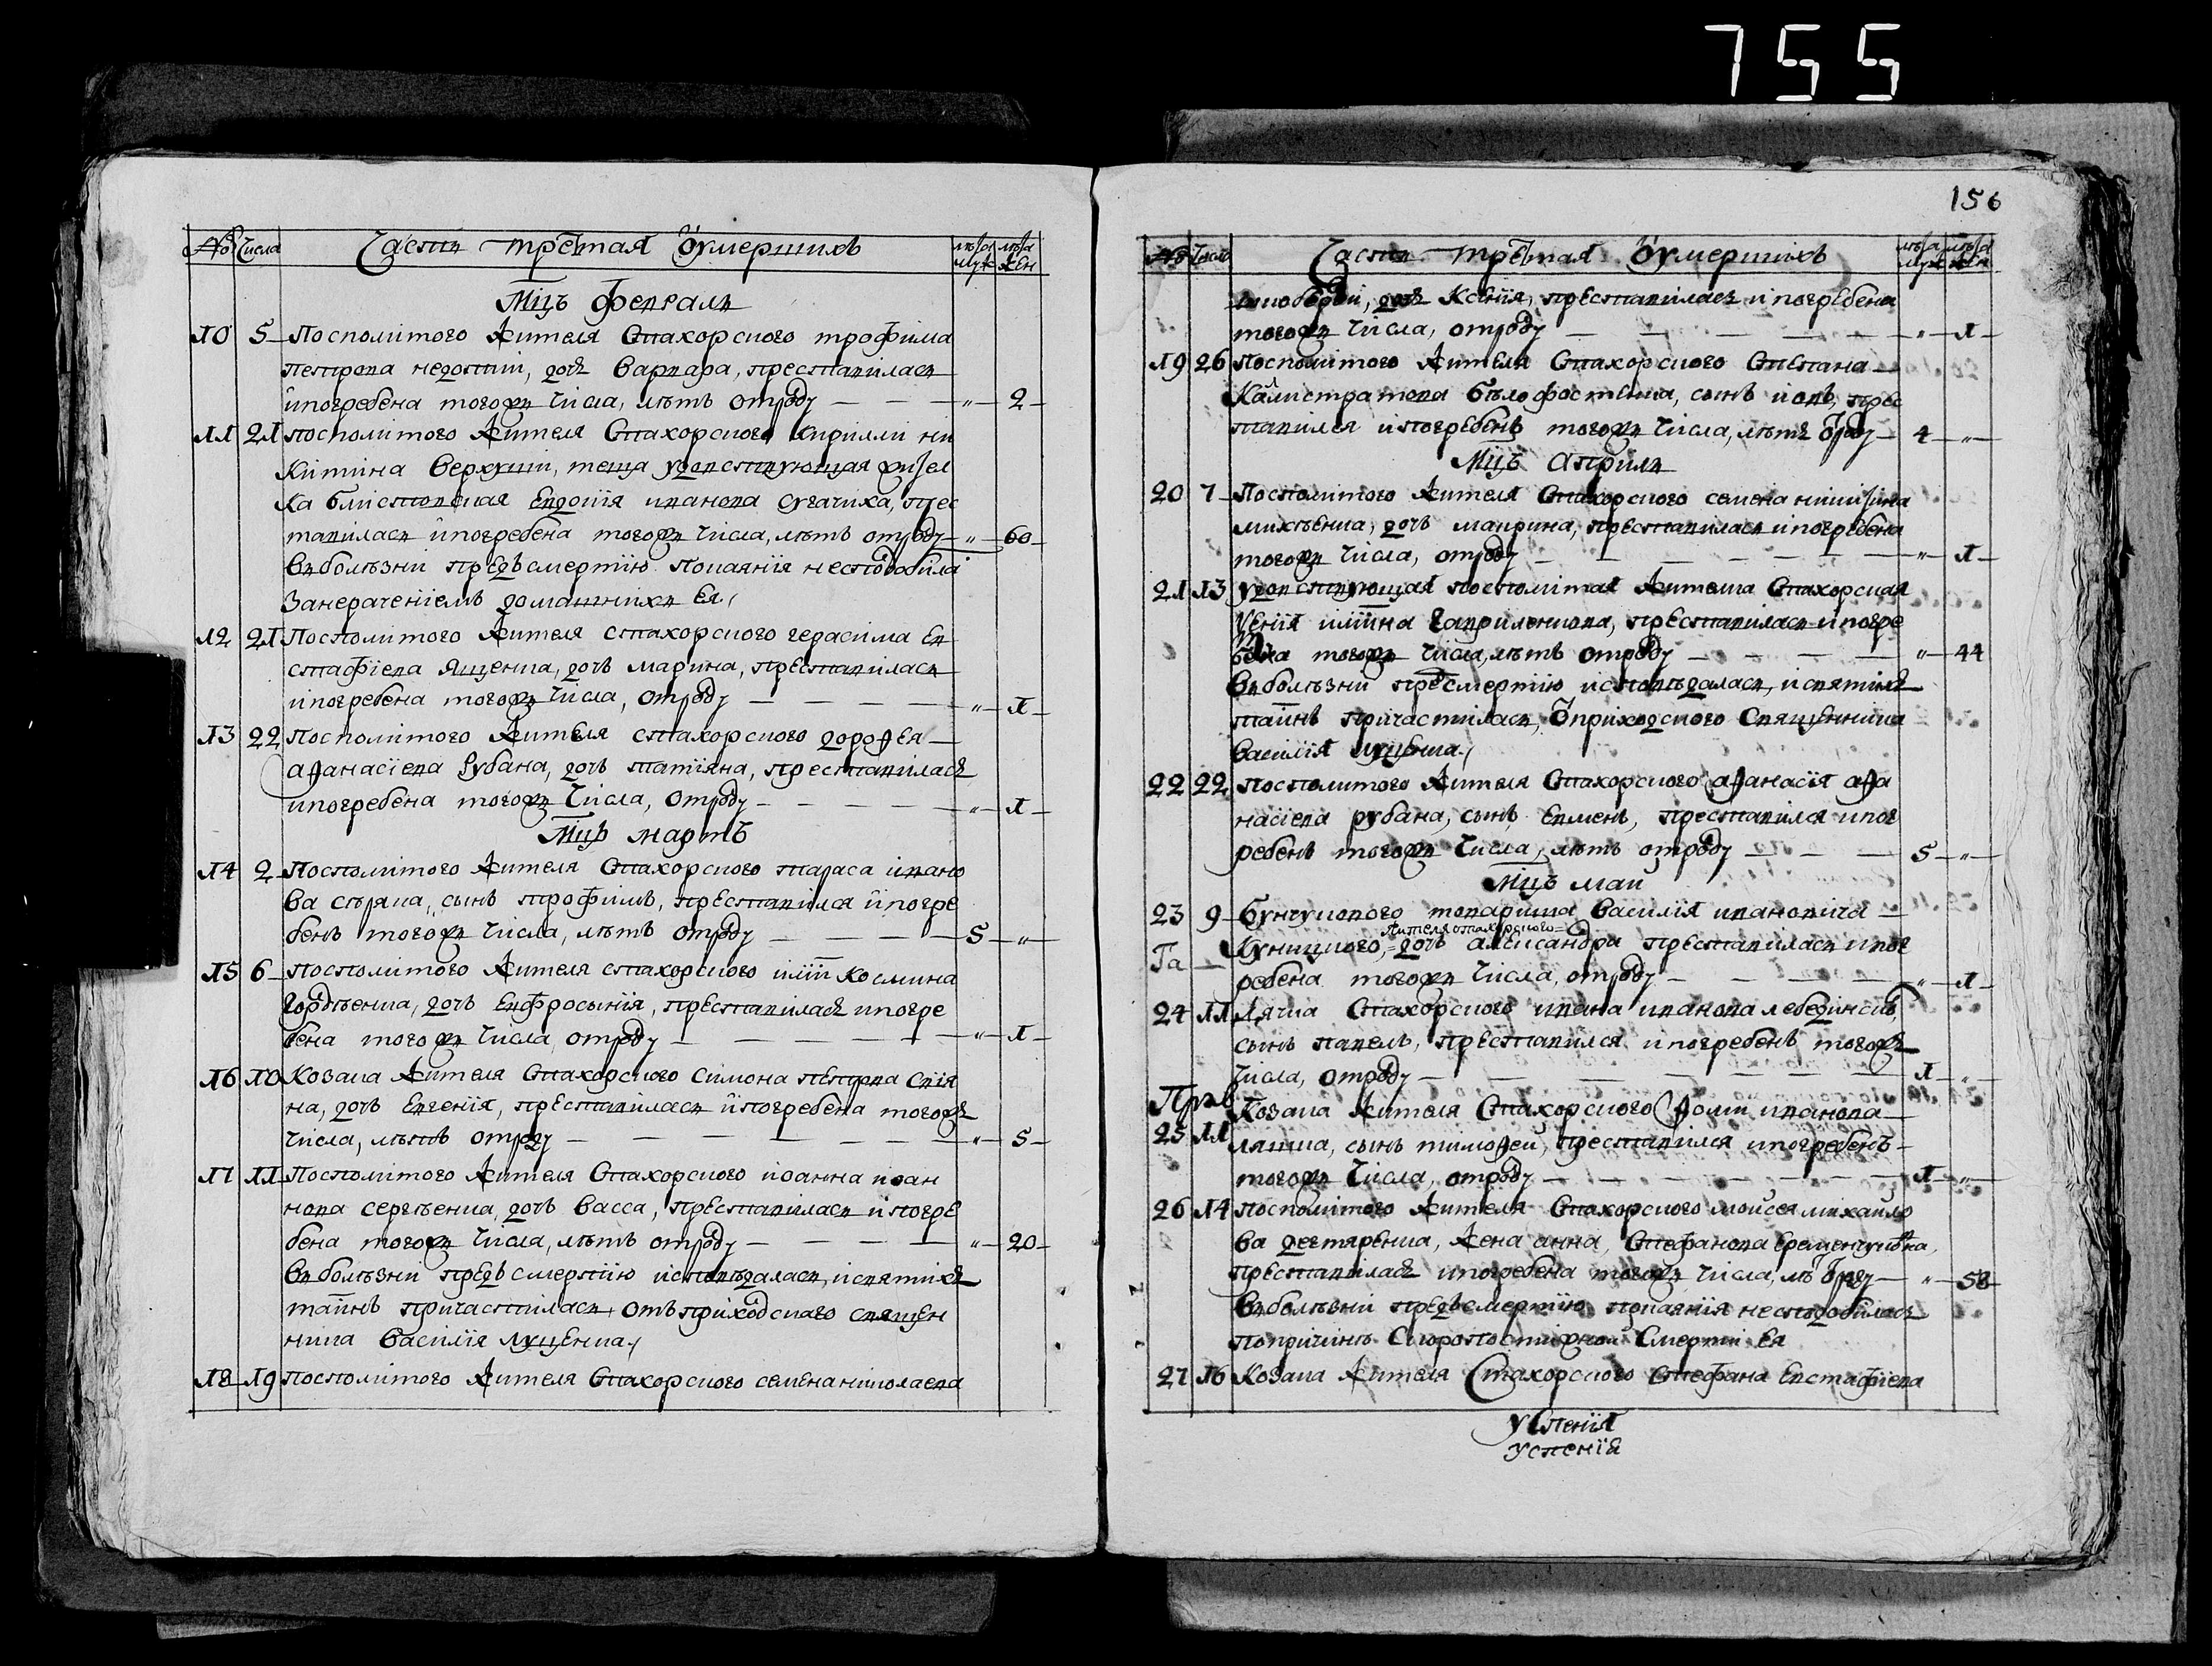 755
№ Числа Часть третая ѿ умершихъ лѣта муж лѣта жен
Мцъ февраль
10 5 Посполитого жителя Стахорского трофима
петрова недолтий, дочь варвара, преставилась
и погребена тогожъ числа, лѣтъ отроду — " — 2
11 21 посполитого жителя Стахорского кирилли ни
китина Верхуши, теща удовствующая
ка Евдокия иванова Сугачиха, прес
тавилась и погребена тогожъ числа, лѣтъ отроду — " — 60
Въ болѣзни предъ смертию покаяния несподобила
Занерачениемъ домашнихъ Ея
12 21 Посполитого жителя стахорского герасима Ев
стафиева Яценка, дочь марина, преставилась
и погребена тогожъ числа, отроду — " — 1
13 22 Посполитого жителя стахорского дорофея
афанасиева Рубана, дочь татияна, преставилась
и погребена тогожъ числа, отроду — " — 1
Мцъ мартъ
14 2 Посполитого жителя Стахорского тараса ивано
ва сѣряка, сынъ трофимъ, преставился и погре
бенъ тогожъ числа, лѣтъ отроду — 5 — "
15 6 посполитого жителя стахорского космина
гордѣенка, дочь Евфросыния, преставилась и погре
бена тогожъ числа, отроду — " — 1
16 10 Козака жителя Стахорского Симона петрова Спія
на, дочь Евгения, преставилась и погребена тогожъ
числа, лѣтъ отроду — " — 5
17 11 Посполитого жителя Стахорского иоанна иоан
нова сергѣенка, дочь Васса, преставилась и погре
бена тогожъ числа, лѣтъ отроду — " — 20
Въ болѣзни предъ смертию исповѣдалась, и святихъ
таинъ причастилась, отъ приходскаго священ
ника Василия Луценка
18 19 посполитого жителя Стахорского семена николаева
156
№ Числа Часть третая ѿ умершихъ лѣта муж лѣта жен
дочь Ксения, преставилась и погребена
тогожъ числа, отроду — " — 1
19 26 Посполитого жителя Стахорского Степана
Калистратова бѣлофостенка, сынъ иовъ, прес
тавился и погребенъ тогожъ числа, лѣтъ ѿроду — 4 — "
Мцъ Априль
20 7 Посполитого жителя Стахорского семена никитина
михѣенка, дочь маврина, преставилась и погребена
тогожъ числа, отроду — " — 1
21 13 удовствующая посполитая жителка Стахорская
гавриленкова, преставилась и погре
бена тогожъ числа, лѣтъ отроду — " — 44
Въ болѣзни предсмертию исповѣдалась, и святихъ
таинъ причастилась, ѿ приходского Священника
Василия Луценка
22 22 посполитого жителя Стахорского афанасия афа
насиева рубана, сынъ Евменъ, преставился и пог
ребенъ тогожъ числа, лѣтъ отроду — 5 — "
Мцъ май
23 9 Бунчукового товариша Василия ивановича
жителя стахорского
Куницкого, дочь александра преставилась и пог
Га
ребена тогожъ числа, отроду — " — 1
24 11 Дячка Стахорского ивана иванова лебединск
сынъ павелъ, преставился и погребенъ тогожъ
числа, отроду — 1 — "
Прав
25 11 Козака жителя Стахорского фоми иванова
ляшка, сынъ тимофей, преставился и погребенъ
тогожъ числа, отроду — 1 — "
26 14 посполитого жителя Стахорского мойсея михайло
ва дегтяренка, жена анна, Стефанова
преставилась и погребена тогожъ числа, лѣ ѿроду — " — 58
Въ болѣзни предъ смертию покаяния несподобилась
по причинѣ Скоропостижной Смерти Ея
27 16 Козака жителя Стахорского Стефана Евстафиева
успения
успения